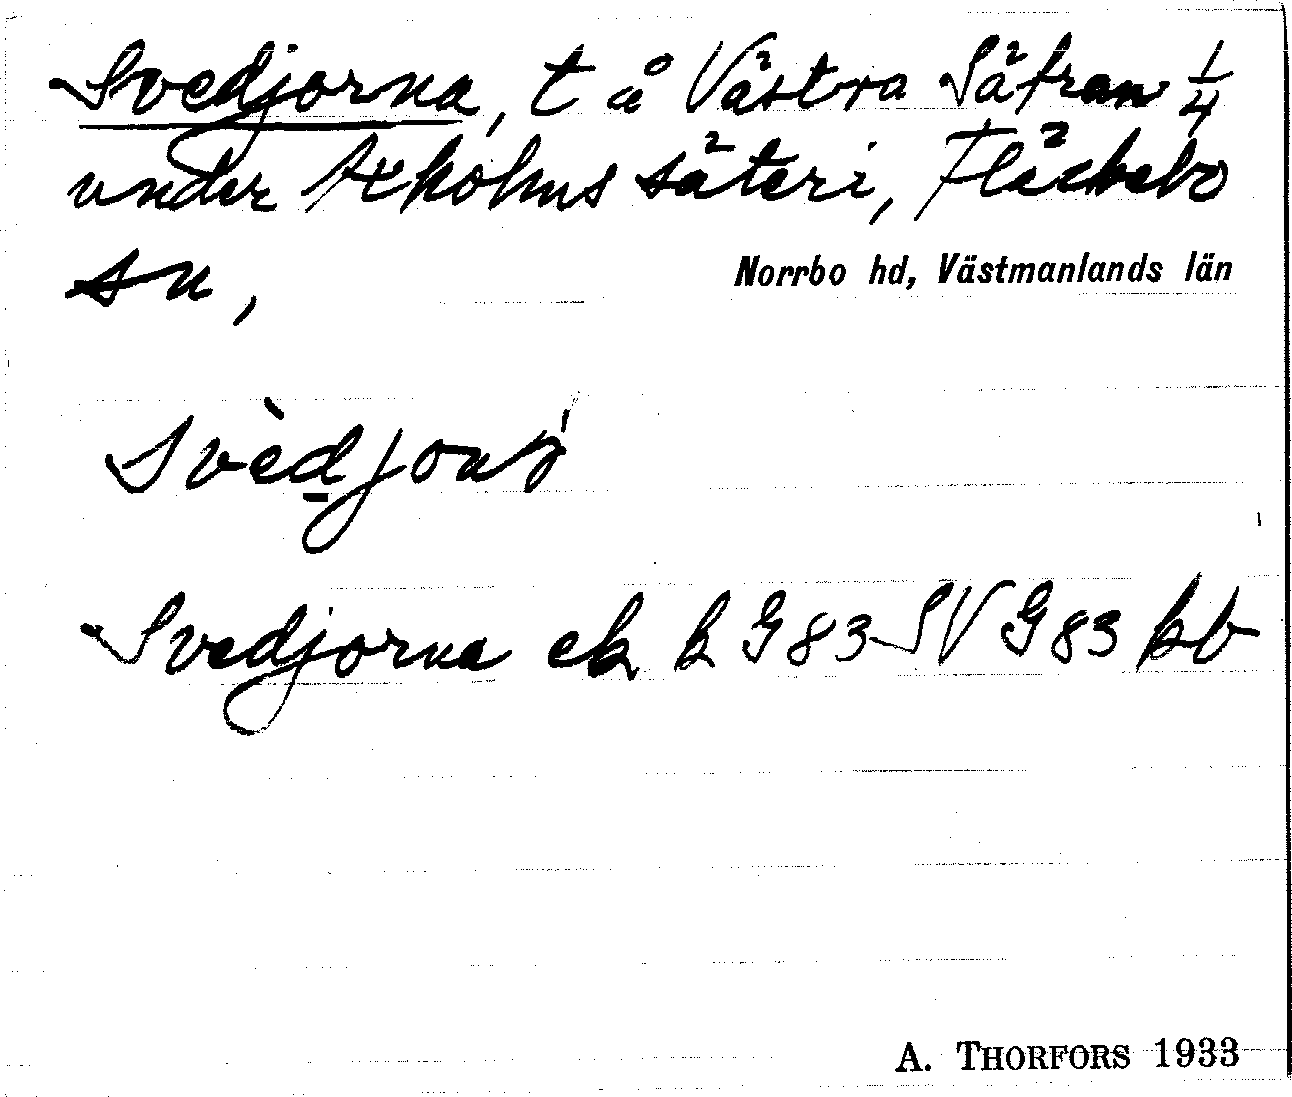 Svedjorna, t å Västra Säfran 1/4
under Axholms säteri, Fläckebo
sn,
Norrbo hd, Västmanlands län
Svedjorna ek k G 83 SV G 83 kb
A. THORFORS 1933